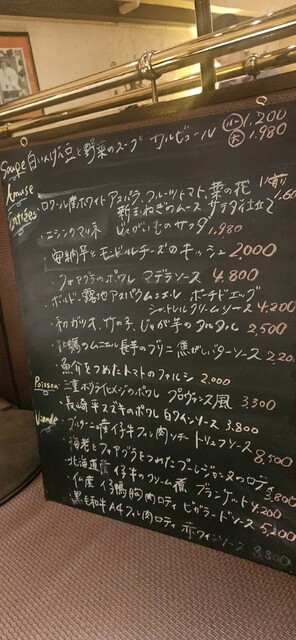 Soupe 白いんげん豆と野菜のスープ ガルビュール
小 1,200
大 1,980
Amuse
Entrées
・ロワール産ホワイトアスパラ、フルーツトマト、菜の花
新玉ねぎのムース サラダ仕立て
・ニシンクマリネ じゃがいものサラダ 1,980
・安納芋とモンドールチーズのキッシュ 2,000
・フォアグラのポワレ マデラソース 4,800
・ボルドー露地アスパラムニエル ポーチドエッグ
シャトレルクリームソース 4,200
・初ガツオ、竹の子、じゃが芋のタルタル 2,500
のムニエル 長芋のブリニ 焦がしバターソース 2,20
・魚介をつめたトマトのファルシ 2,000
Poisson ・三重 ホウライヒメジのポワレ プロヴァンス風 3,300
・長崎 平スズキのポワレ 白ワインソース 3,800
Viande ・ブルターニュ産仔牛フィレ肉ソテー トリュフソース 8,500
・海老とフォアグラをつめたプーレジョンヌのロティ 3,800
・北海道産 仔牛のクリーム煮 ブランケット 4,200
・仏産 仔鴨胸肉ロティ ビガラードソース 5,200
・黒毛和牛A4フィレ肉ロティ 赤ワインソース 8,800